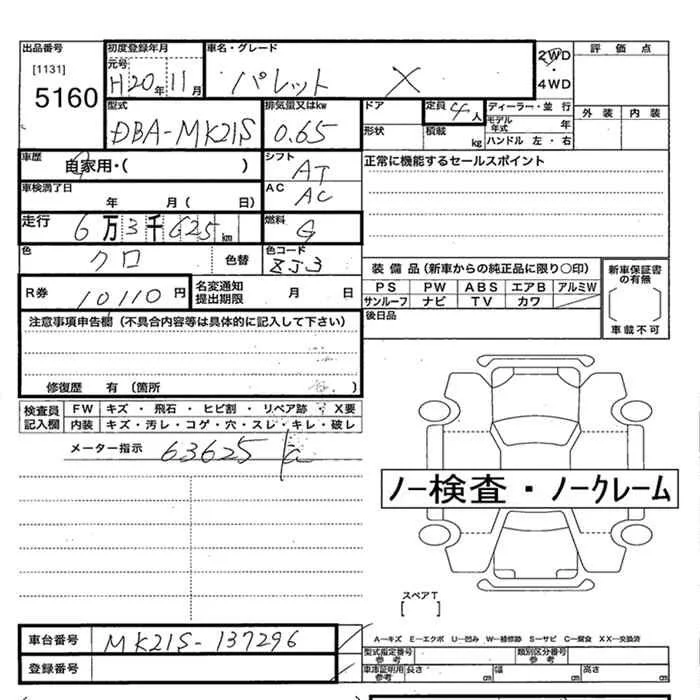 出品番号 初度登録年月 車名・グレード 2WD 評価点
[1131] 元号 H20年11月 パレット X ・
5160 4WD
型式 排気量又はkw ドア 定員 4人 ディーラー・並行 外装 内装
DBA-MK21S 0.65 形状 積載 kg モデル年式 年
ハンドル 左・右
車歴 自家用・( ) シフト AT 正常に機能するセールスポイント
車検満了日 年 月( 日) AC AC
走行 6万3千625km 燃料 G
色 クロ 色替 色コード ZJ3 装備品(新車からの純正品に限り○印) 新車保証書の有無
PS PW ABS エアB アルミW
R券 10110円 名変通知提出期限 月 日 サンルーフ ナビ TV カワ
後日品 車載不可
注意事項申告欄(不具合内容等は具体的に記入して下さい)
修復歴 有(箇所 )
検査員記入欄 FW キズ・飛石・ヒビ割・リペア跡・X要
内装 キズ・汚レ・コゲ・穴・スレ・キレ・破レ
メーター指示 63625
ノー検査・ノークレーム
スペアT
[ ]
車台番号 MK21S-137296 A−キズ E−エクボ U−凹み W−補修跡 S−サビ C−腐食 XX−交換済
登録番号 型式指定番号 参考 類別区分番号 参考
車庫証明用 参考 長さ cm 幅 cm 高さ cm